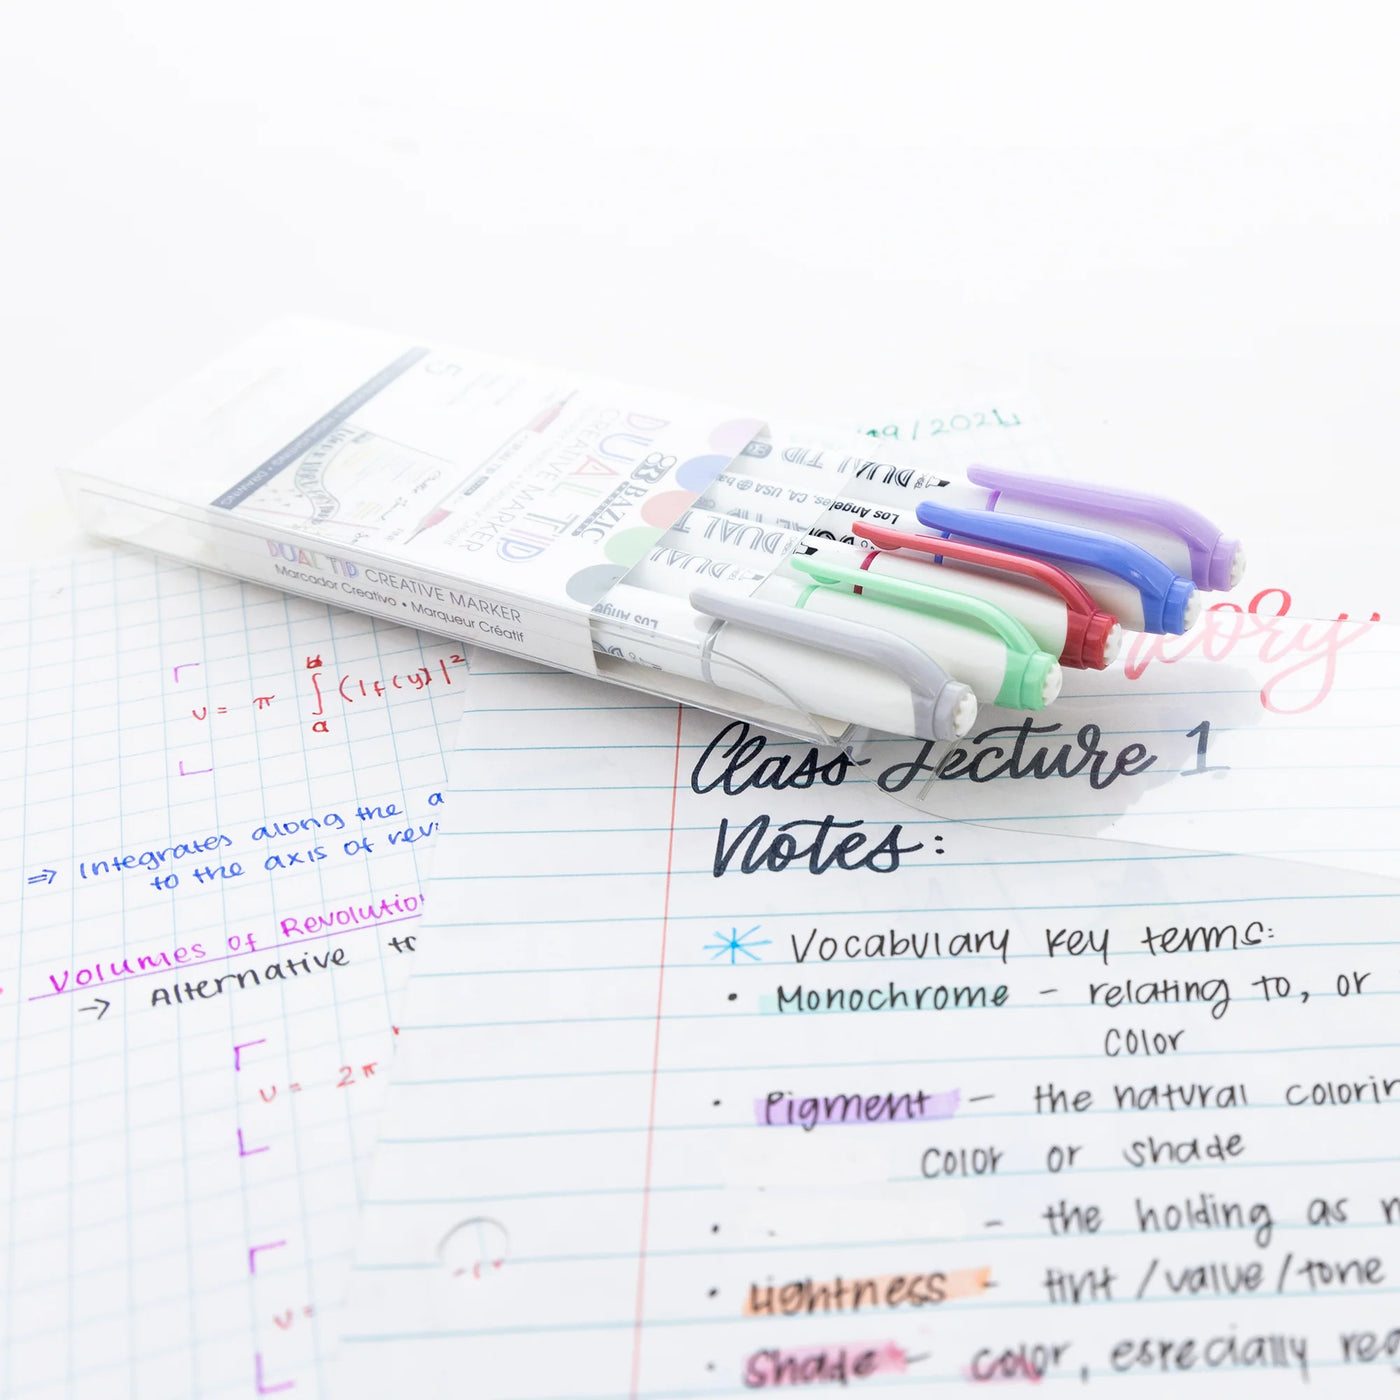 09/2021
5
BAZIC
DUAL TIP
CREATIVE MARKER
DUAL TIP CREATIVE MARKER
Marcador Creativo • Marqueur Créatif
DUAL TIP
Los Angeles, CA USA
DUAL TIP
DUAL
Los Ange
eory
Class Lecture 1
Notes:
Vocabulary key terms:
• Monochrome – relating to, or
color
• Pigment – the natural colorin
color or shade
• – the holding as
• Lightness – tint/value/tone
• Shade – color, especially
υ = π ∫ a b (|f(y)|²
⇒ Integrates along the a
to the axis of rev
Volumes of Revolutio
→ Alternative
υ = 2π
υ =